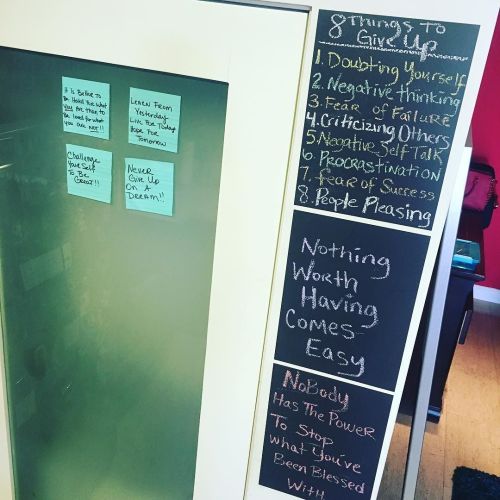 It Is Better To
Be Hated For What
You Are than to
Be loved for what
you are NOT!!
Learn From
Yesterday
Live For Today
Hope For
Tomorrow
Challenge
Yourself
To Be
Great!!
Never
Give Up
On A
Dream!!
8 Things To
Give Up
1. Doubting Yourself
2. Negative thinking
3. Fear of Failure
4. Criticizing Others
5. Negative Self Talk
6. Procrastination
7. Fear of Success
8. People Pleasing
Nothing
Worth
Having
Comes
Easy
NoBody
Has The Power
To Stop
what You've
Been Blessed
With